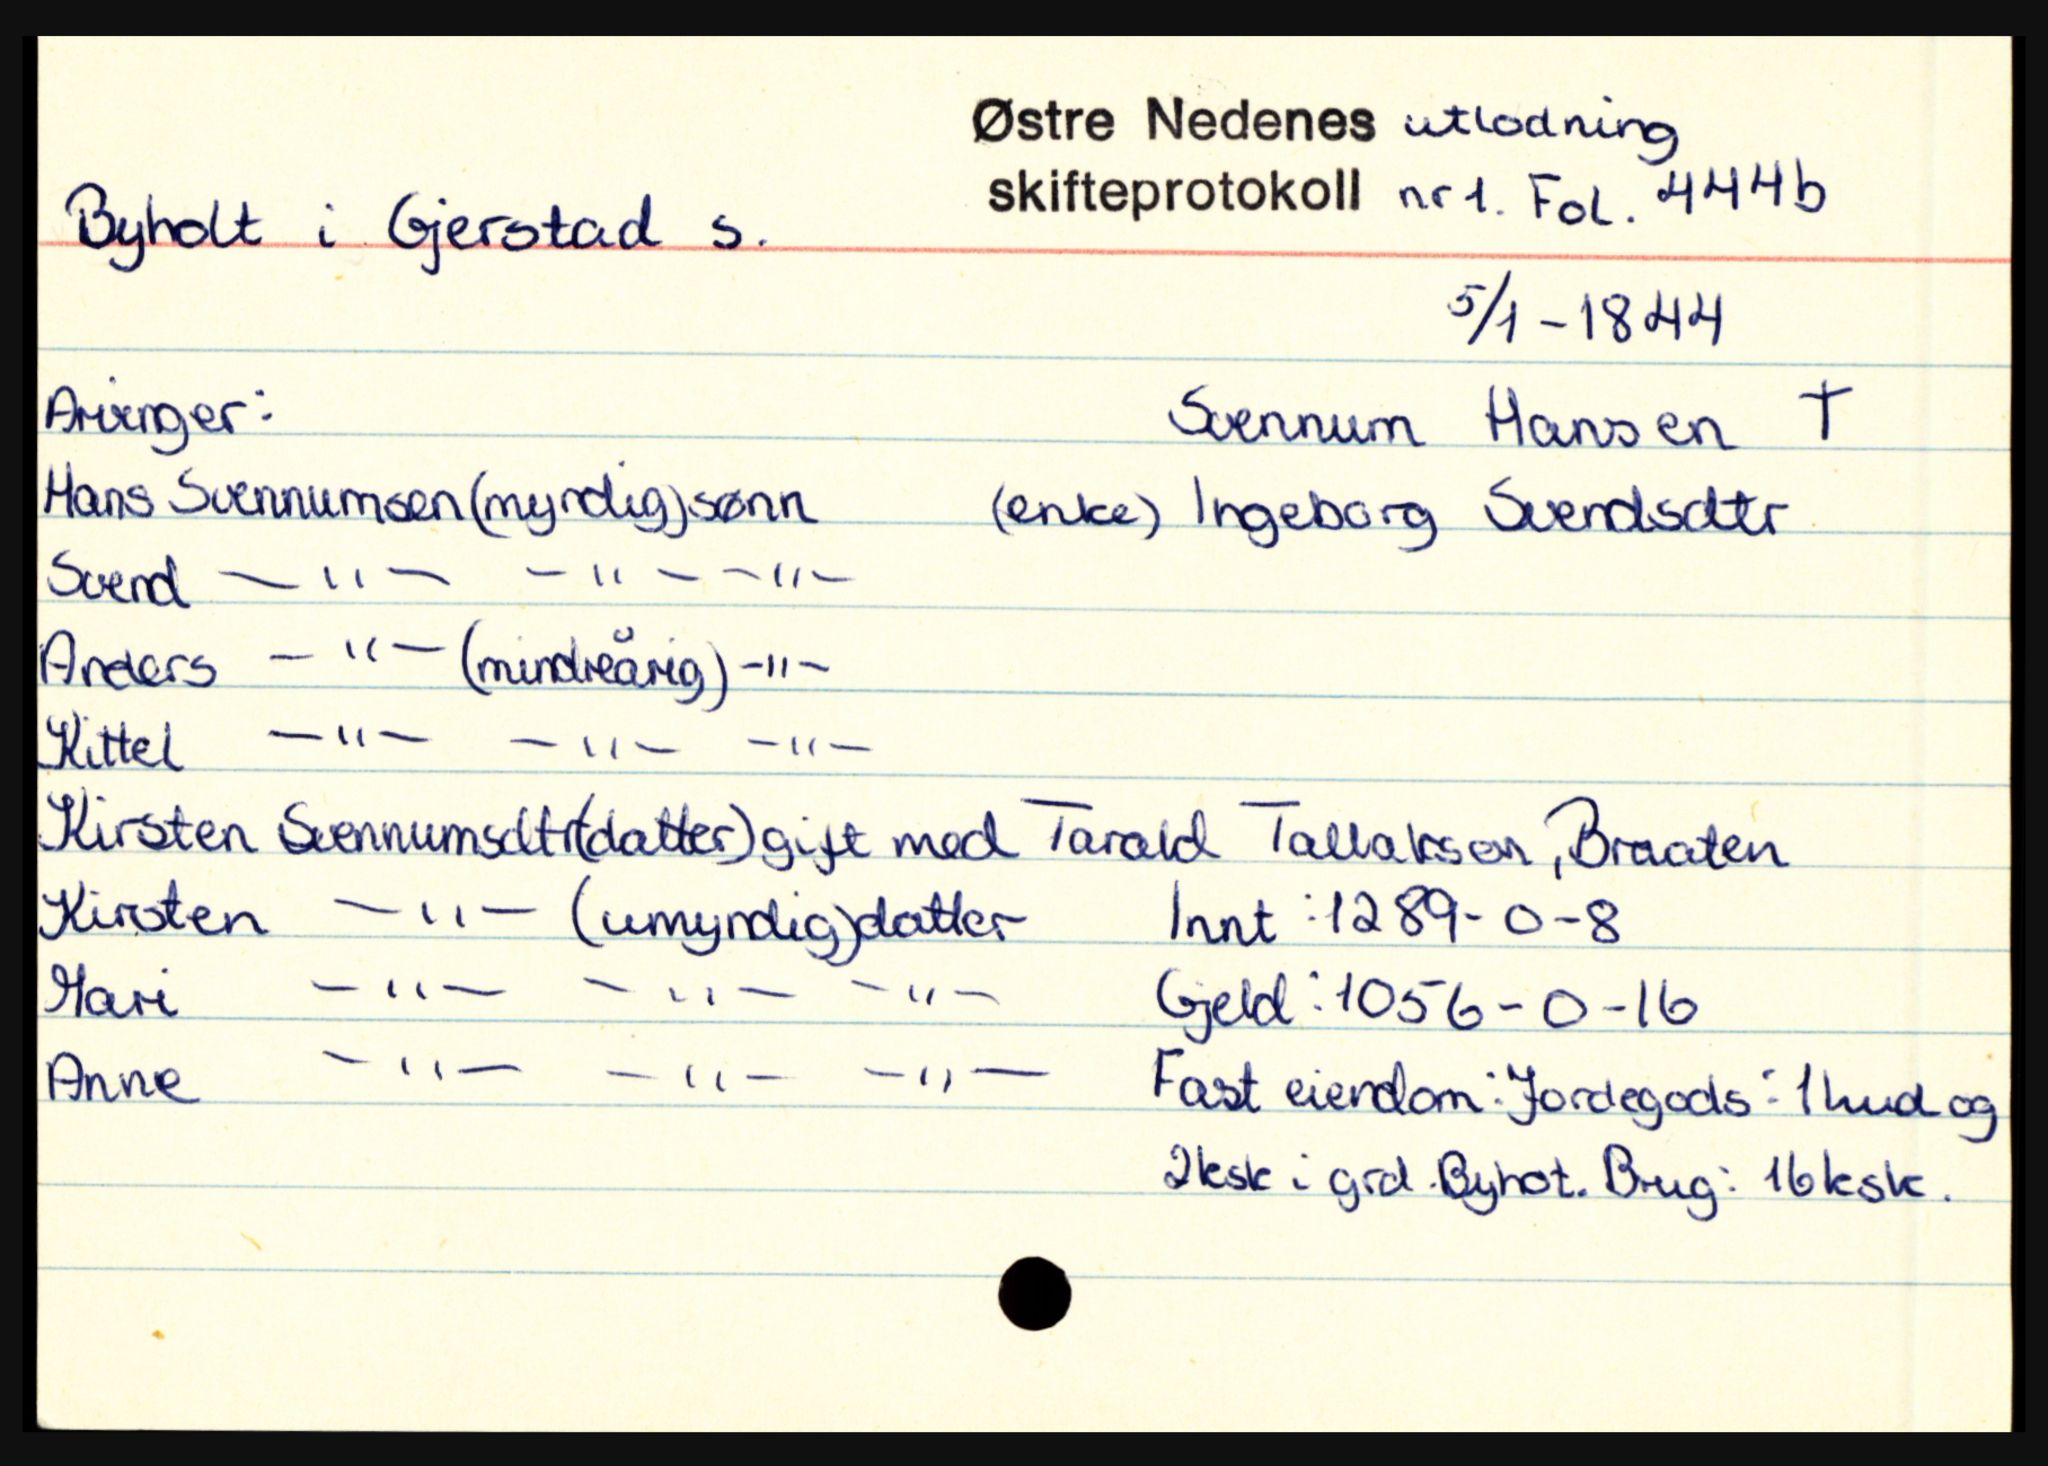 Østre Nedenes utlodning
skifteprotokoll nr 1. Fol. 444b
Byholt i Gjerstad s.
5/1 - 1844
Arvinger: Svennum Hansen †
Hans Svennumsen (myndig) sønn (enke) Ingeborg Svendsdtr
Svend — " — — " — — " —
Anders — " — (mindreårig) — " —
Kittel — " — — " — — " —
Kirsten Svennumsdtr (datter) gift med Tarald Tallaksen, Braaten
Kirsten — " — (umyndig) datter Innt : 1289 - 0 - 8
Mari — " — — " — — " — Gjeld : 1056 - 0 - 16
Anne — " — — " — — " — Fast eiendom : Jordegods : 1 hud og
2 ksk i grd. Byhot. Brug : 16 ksk.